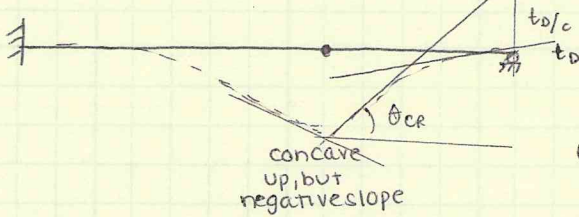 t_D/c
t_D
θ_CR
concave
up, but
negative slope